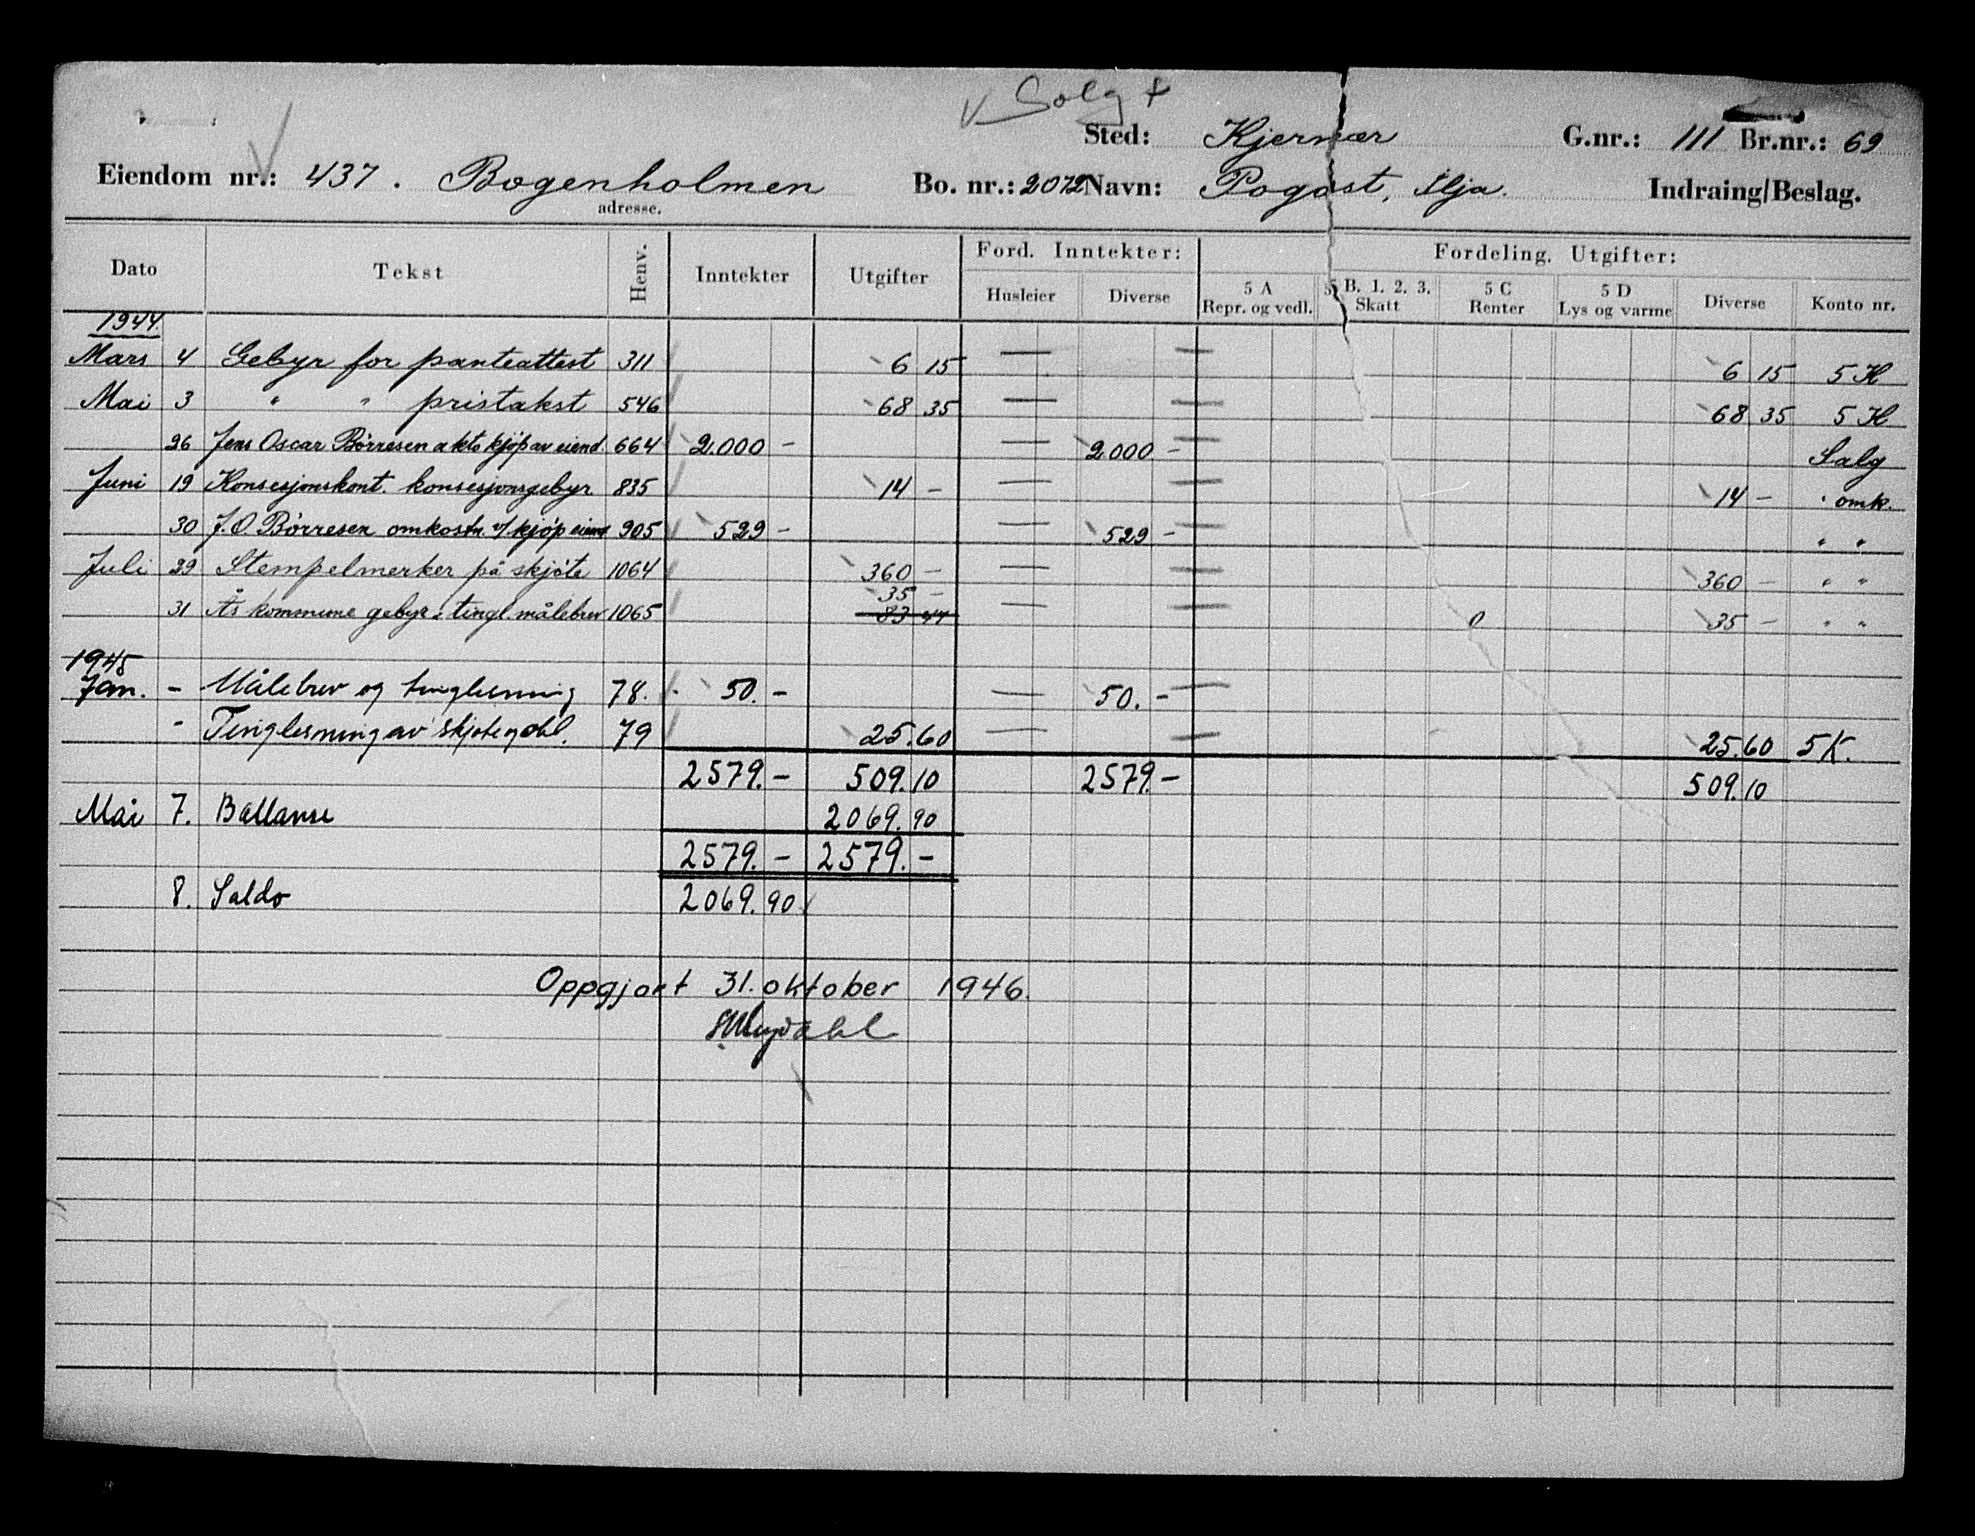 Solg +
Sted: Kjernær G.nr.: 111 Br.nr.: 69
Eiendom nr.: 437. Bogenholmen Bo. nr.: 2072 Navn: Pogost, Ilja. Indraing/Beslag.
adresse.
Dato Tekst Henv. Inntekter Utgifter Ford. Inntekter: Fordeling. Utgifter:
Husleier Diverse 5 A Repr. og vedl. 5 B. 1. 2. 3. Skatt 5 C Renter 5 D Lys og varme Diverse Konto nr.
1944.
Mars 4 Gebyr for panteattest 311 6 15 — — 6 15 5 H
Mai 3 " " pristakst 546 68 35 — — 68 35 5 H
26 Jens Oscar Børresen akto kjøp av eiend. 664 2.000 - — 2000 - — Salg
Juni 19 Konsesjonskont. konsesjonsgebyr 835 14 - — — 14 - " omk.
30 J.O. Børresen omkostn. v/ kjøp eiend 905 529 - — 529 - — " "
Juli 29 Stempelmerker på skjøte 1064 360 - — — 360 - " "
35 -
31 Ås kommune gebyr, tingl. målebrev 1065 83 47 — — 0 35 - " "
1945
Jan. - Målebrev og tinglesning 78. 50. - — 50. - —
- Tinglesning av skjøte og obl. 79 25.60 — — 25.60 5 K.
2579. - 509.10 2579. - 509.10
Mai 7. Ballanse 2069.90
2579. - 2579. -
8. Saldo 2069.90
Oppgjort 31. oktober 1946.